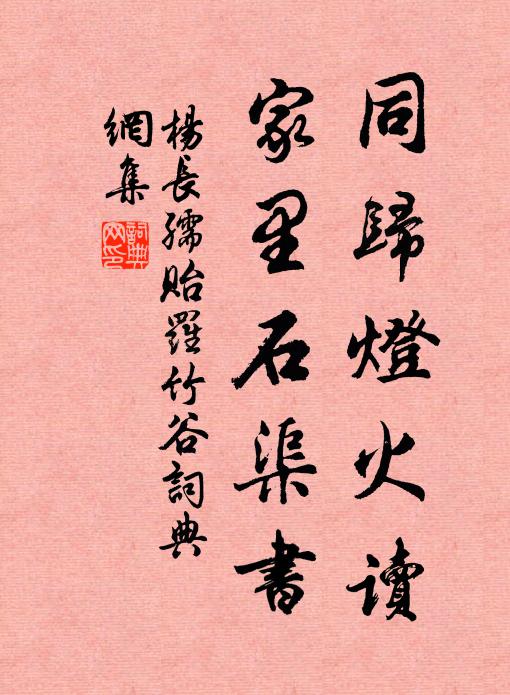 同歸燈火讀
家里石渠書
楊長孺貽羅竹谷詞典
網集
詞典網印